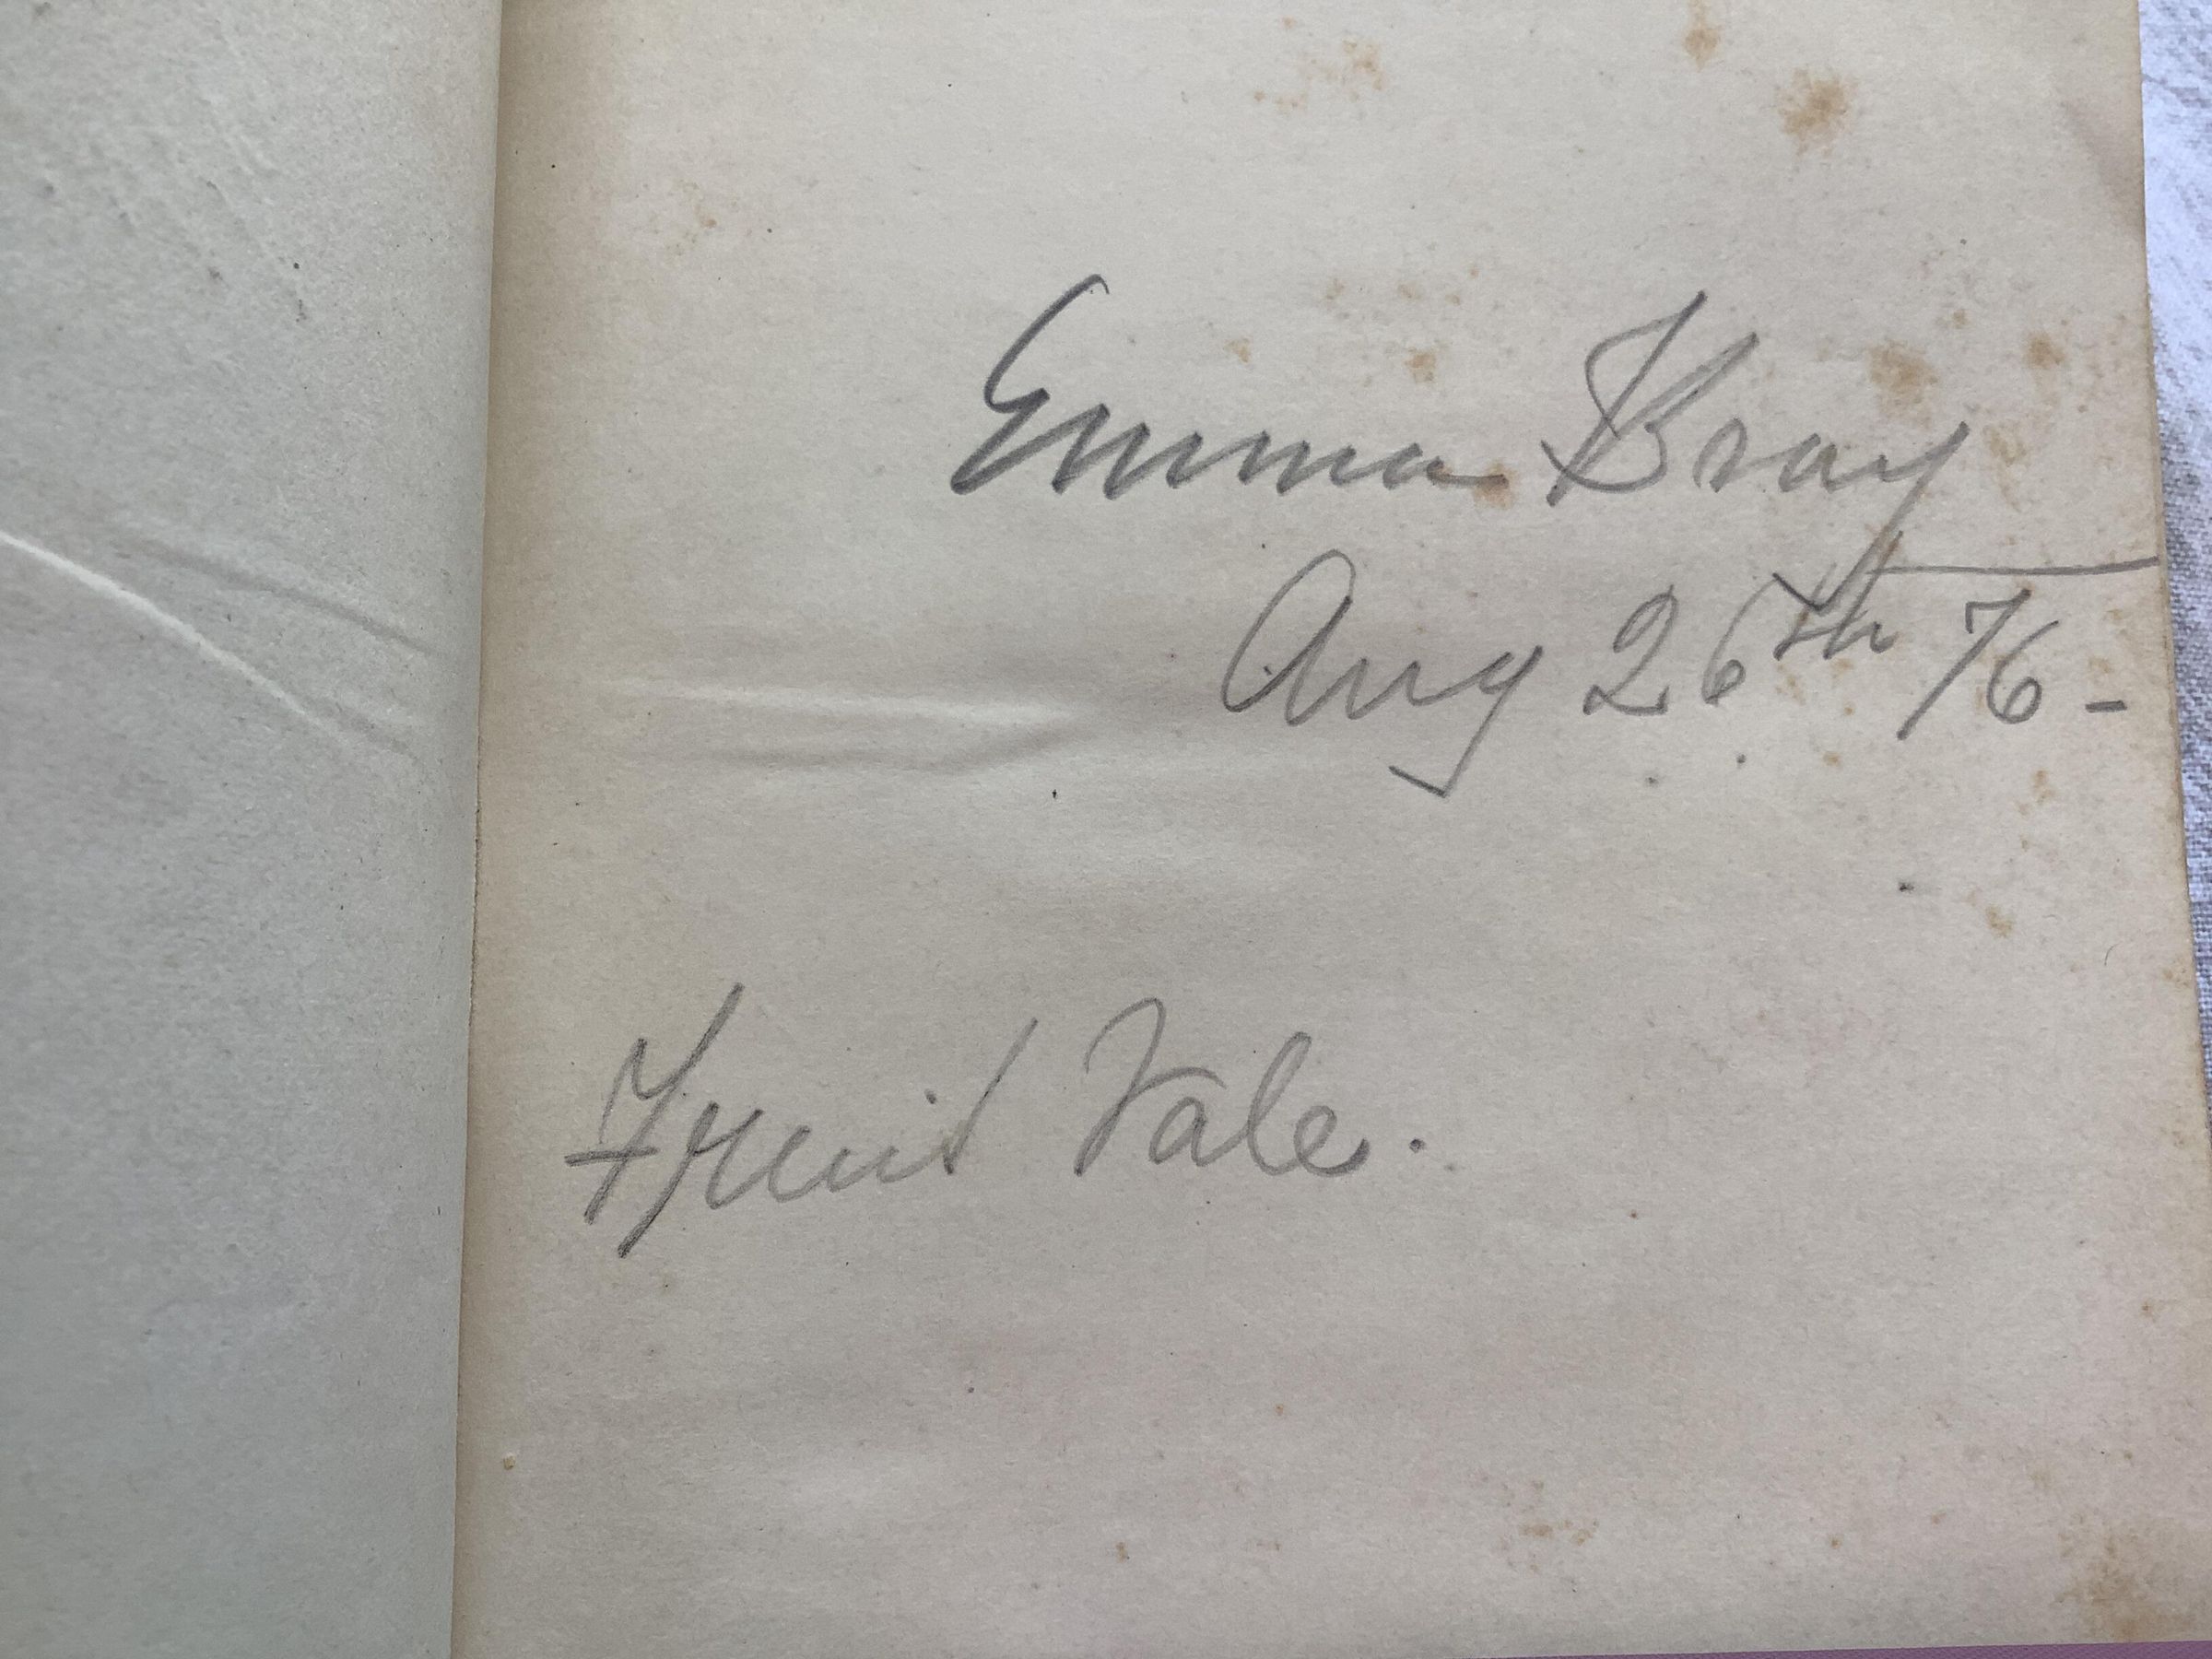 Emma Bray
Aug 26th 76 -
Fruit Vale.